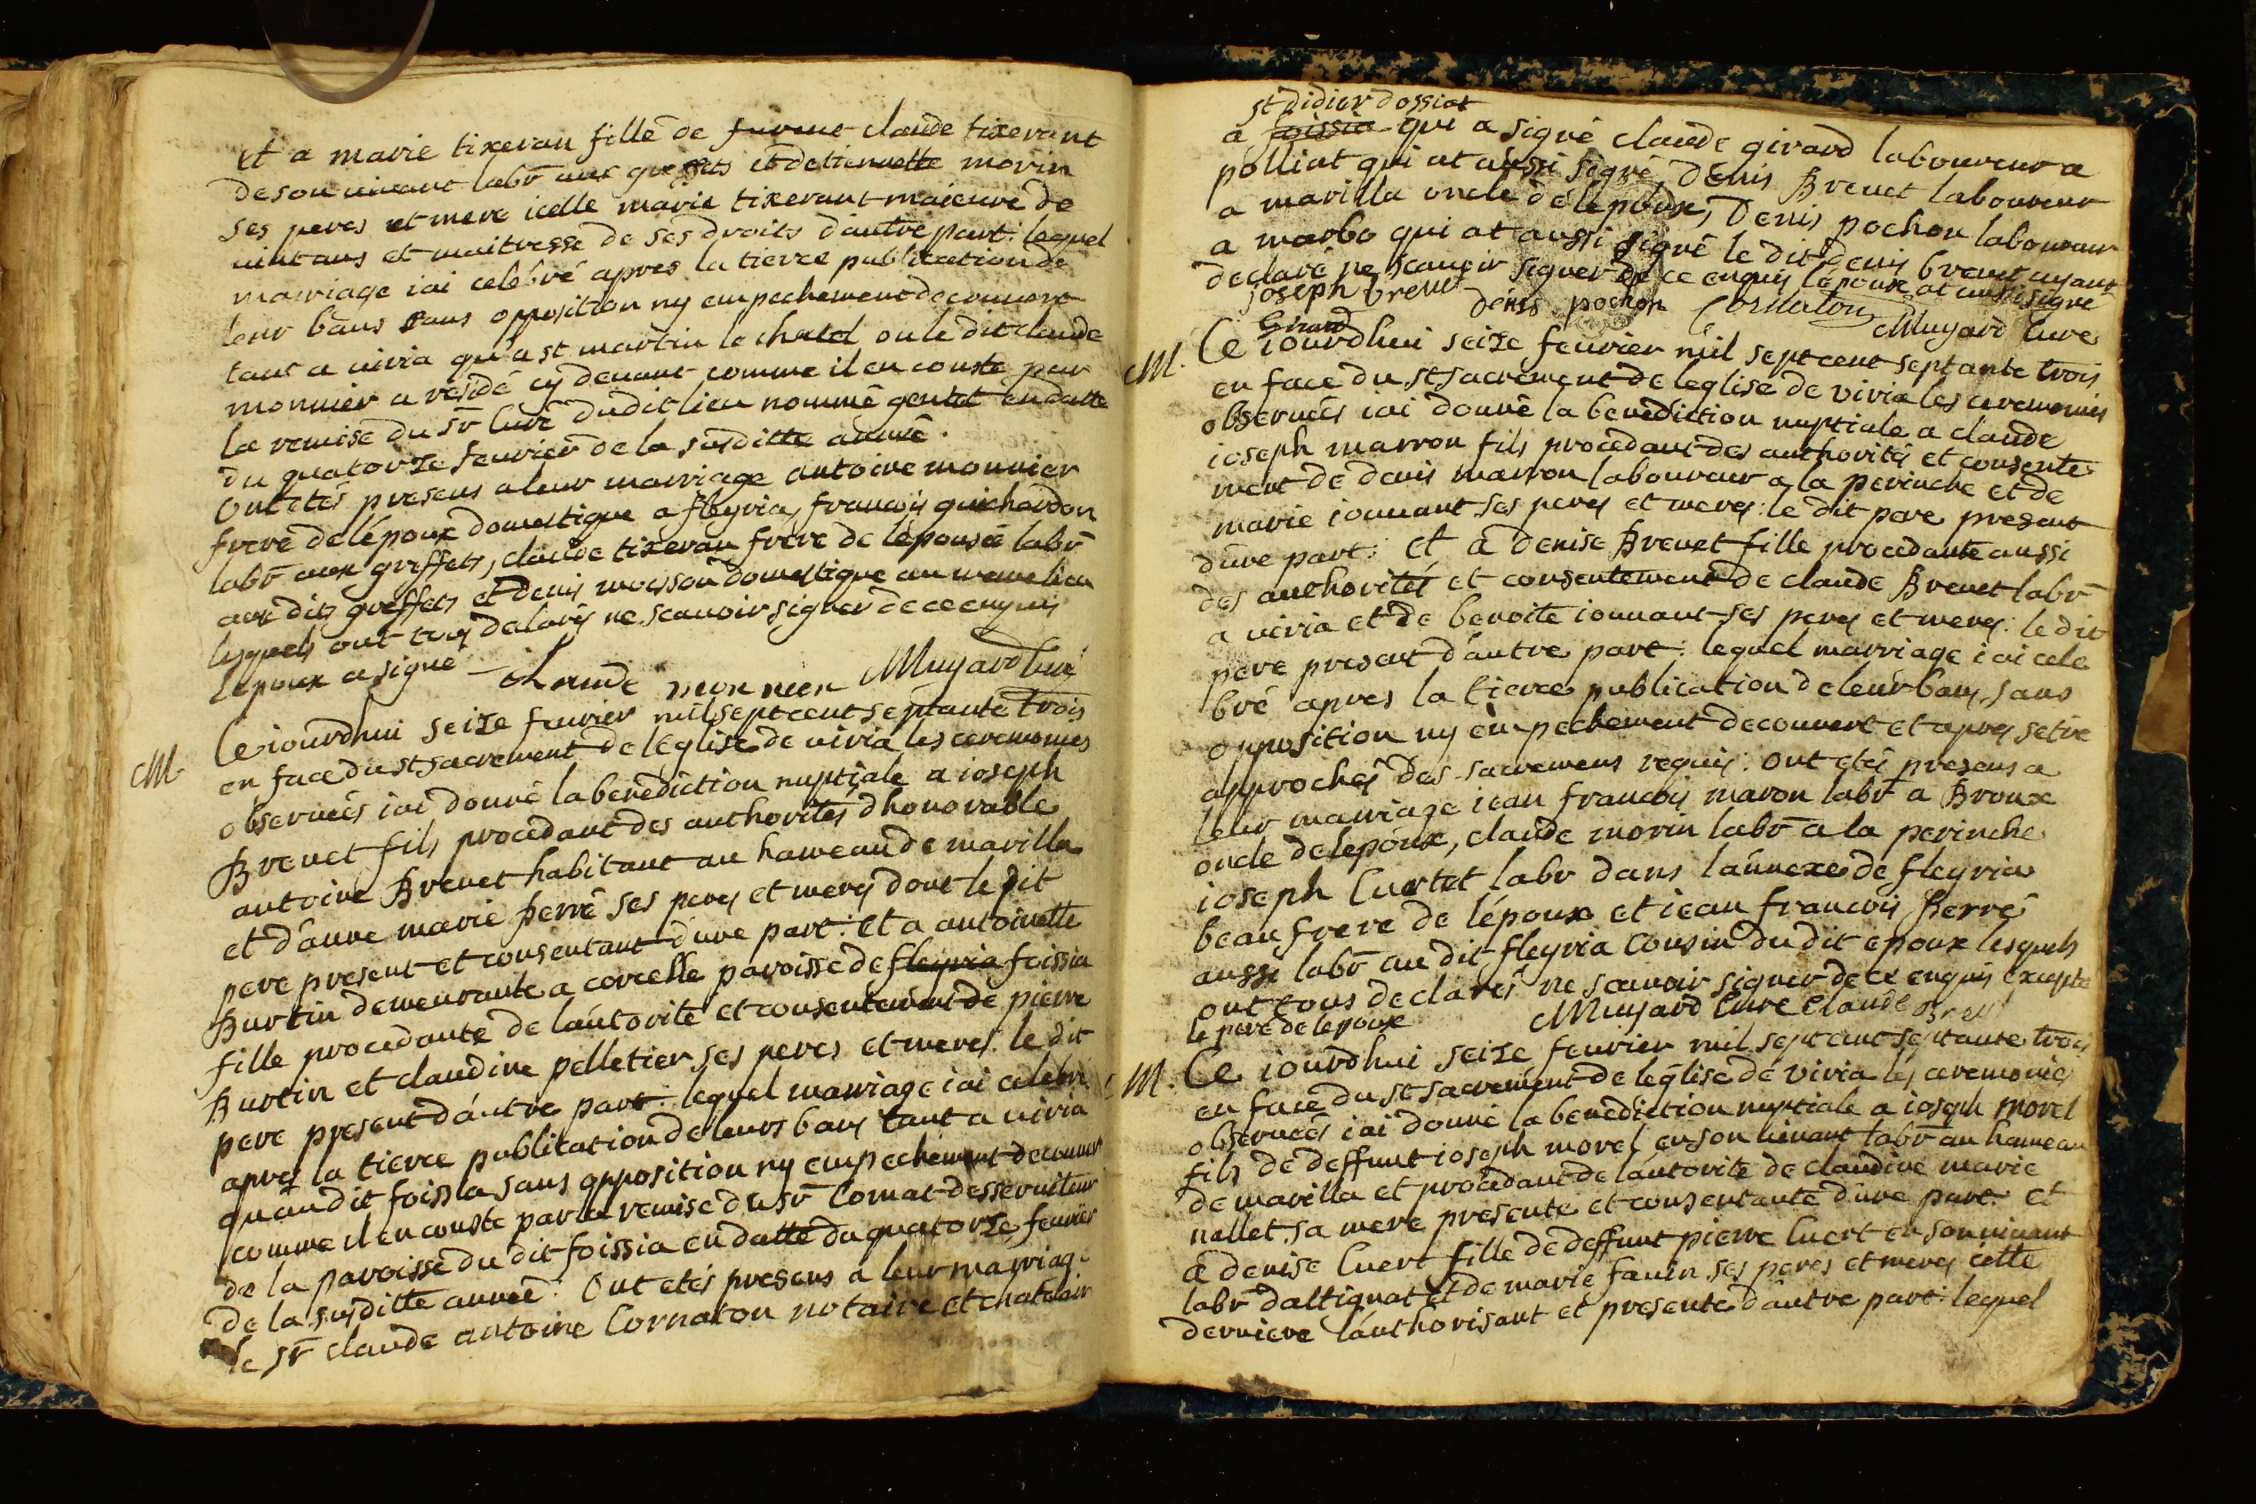 et a marie tixeran fille de furent claude tixerant
de son vivant labr aux greffets et detiennette morin
ses peres et mere icelle marie tixerant maieure de
vint ans et maitresse de ses droits d'autre part: lequel
marriage iai celebré apres la tierce publication de
leur bans sans opposition ny empechement decouvert
tant a viria qu'a st martin le chatel ou le dit claude
monnier a residé cy devant comme il en conste par
la remise du sr Curé dudit lieu nommé gentet en datte
du quatorze fevrier de la susditte année.
Ont etés presens a leur marriage antoine monnier
frere de l'époux domestique a fleyria, françois guichardon
labr aux greffets, claude tixeran frere de l'épousée labr
aux dits greffets et denis moisson domestique au meme lieu
lesquels ont tous declarés ne scavoir signer de ce enquis
lepoux a signé
Claude monnier Muyard Curé
M. Ce iourdhui seize fevrier mil sept cent septante trois
en face du st sacrement de l'eglise de viria les ceremonies
observées iai donné la benediction nuptiale a ioseph
Brevet fils procedant des authorités dhonorable
antoine Brevet habitant au hameau de marilla
et d'anne marie Ferré ses peres et meres dont le dit
pere present et consentant d'une part: et a antoinette
Burtin demeurante a corcelle paroisse de fleyria foissia
fille procedante de l'autorité et consentement de pierre
Burtin et claudine pelletier ses peres et meres le dit
pere present d'autre part: lequel marriage iai celebré
apres la tierce publication de leurs bans tant a viria
quau dit foissia sans opposition ny empechement decouvert
comme il en conste par la remise du sr Cornat desserviteur
de la paroisse du dit foissia en datte du quatorze fevrier
de la susditte année: Ont etés presens a leur marriage
le sr claude antoine Cornaton notaire et chatelain
st didier dossiat
a foissia qui a signé claude girard laboureur a
polliat qui at aussi signé denis Brevet laboureur
a marilla oncle de lépoux, Denis pochon laboureur
a marbo qui at aussi signé le dit denis brevet ayant
declaré ne scavoir signer de ce enquis lepoux at aussi signé
joseph brevet denis pochon Cornaton
Girard Muyard Curé
M. Ce iourdhui seize fevrier mil sept cent septante trois
en face du st sacrement de leglise de viria les ceremonies
observées iai donné la benediction nuptiale a claude
ioseph marron fils procedant des authorités et consente
ment de denis marron laboureur a la perinche et de
marie iouuant ses peres et meres: le dit pere present
d'une part: et a denise Brevet fille procedante aussi
des authorités et consentement de claude Brevet labr
a viria et de benoite iouuant ses peres et meres: le dit
pere present d'autre part: lequel marriage iai cele
bré apres la tierce publication de leur bans sans
opposition ny empechement decouvert et apres setre
approchés des sacremens requis: Ont etés presens a
leur marriage iean françois maron labr a Broux
oncle de lepoux, claude morin labr a la perinche
ioseph Curtet labr dans l'annexe de fleyria
beau frere de lépoux et iean françois Ferré
aussi labr au dit fleyria Cousin du dit epoux lesquels
ont tous declarés ne scavoir signer de ce enquis excepté
le pere de lepouse Muyard Curé Claude Brevet
M. Ce iourdhui seize fevrier mil sept cent septante trois
en face du st sacrement de leglise de viria les ceremonies
observées iai donné la benediction nuptiale a ioseph morel
fils de deffunt ioseph morel en son vivant labr au hameau
de marilla et procedant de l'autorité de claudine marie
nallet sa mere presente et consentante d'une part: et
a denise Cuert fille de deffunt pierre Cuert en son vivant
labr d'attignat et de marie favin ses peres et meres cette
derniere l'authorisant et presente d'autre part: lequel